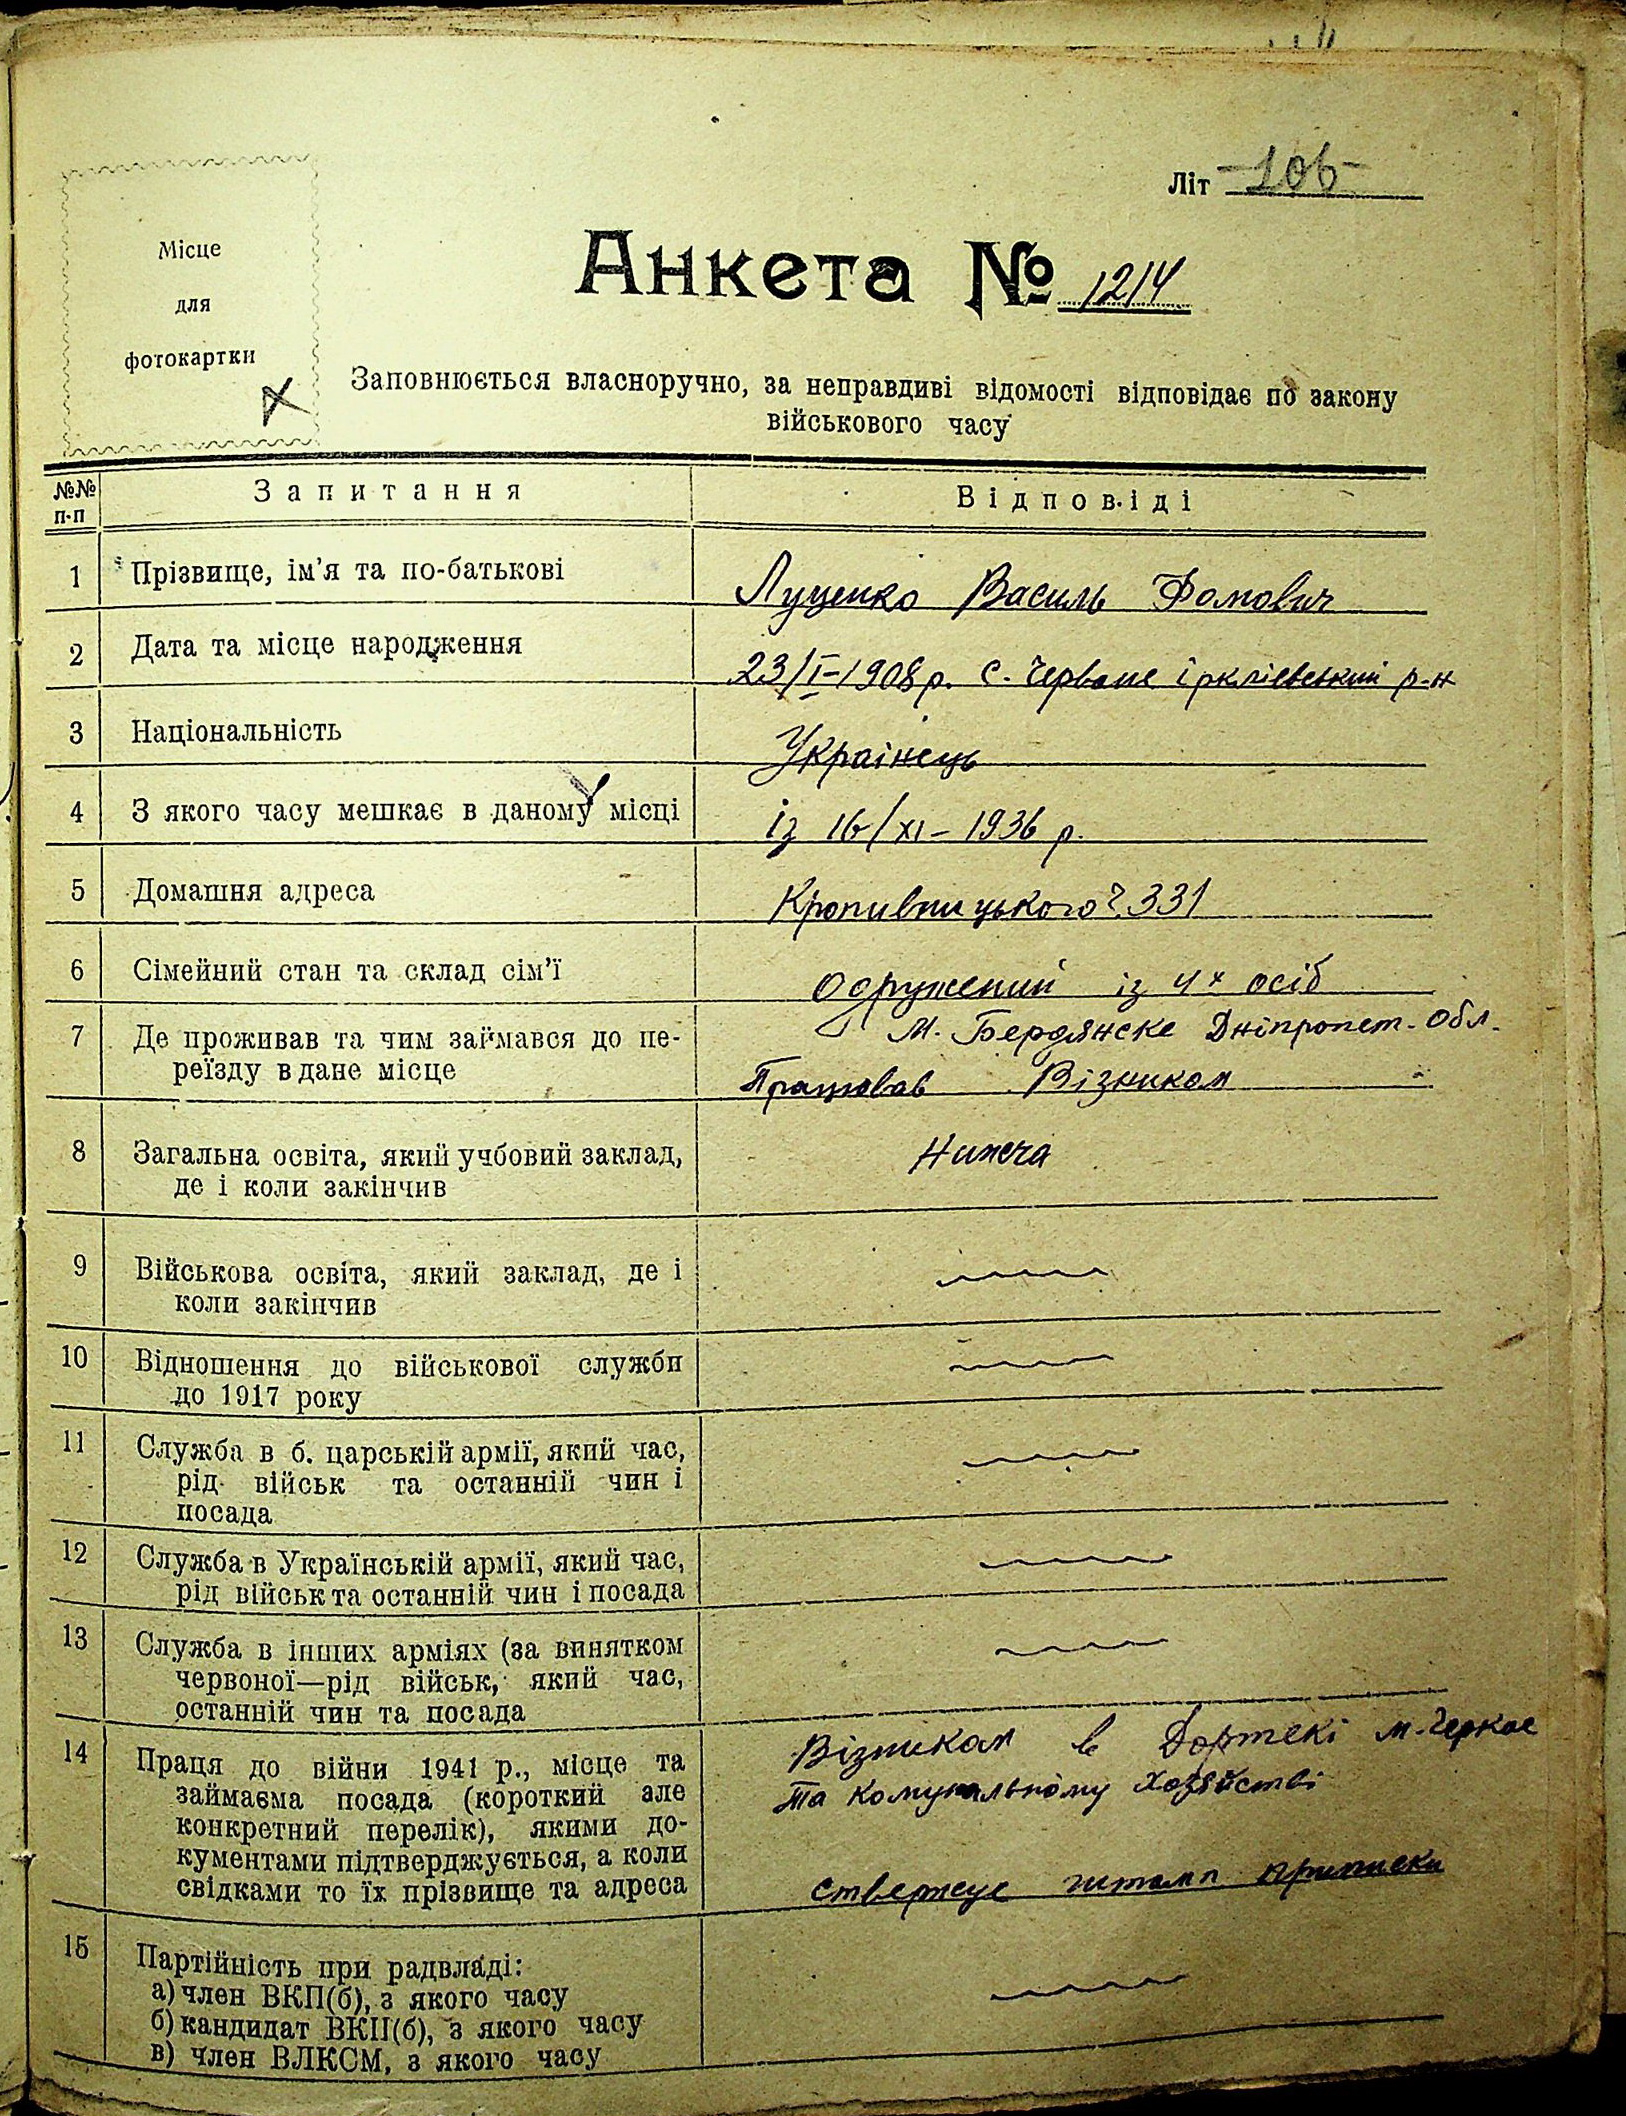 Літ -106-
Місце
для
фотокартки
Анкета № 1214
Заповнюється власноручно, за неправдиві відомості відповідає по закону
військового часу
№№ п-п
Запитання
Відповіді
1 Прізвище, ім'я та по-батькові
Луценко Василь Фомович
2 Дата та місце народження
23/I-1908 р. с. Червоне іркліевський р-н
3 Національність
Українець
4 З якого часу мешкає в даному місці
із 16/XI - 1936 р.
5 Домашня адреса
Кропивницького 331
6 Сімейний стан та склад сім'ї
Одружений із 4х осіб
7 Де проживав та чим займався до пе-
реїзду в дане місце
м. Бердянске Дніпропет. обл.
Працював Візником
8 Загальна освіта, який учбовий заклад,
де і коли закінчив
Нижча
9 Військова освіта, який заклад, де і
коли закінчив
10 Відношення до військової служби
до 1917 року
11 Служба в б. царській армії, який час,
рід військ та останній чин і
посада
12 Служба в Українській армії, який час,
рід військ та останній чин і посада
13 Служба в інших арміях (за винятком
червоної—рід військ, який час,
останній чин та посада
14 Праця до війни 1941 р., місце та
займаєма посада (короткий але
конкретний перелік), якими до-
кументами підтверджується, а коли
свідками то їх прізвище та адреса
Візником в м. Черкас
та комунальному хозяйстві
ствержує штамп прописки
15 Партійність при радвладі:
а) член ВКП(б), з якого часу
б) кандидат ВКП(б), з якого часу
в) член ВЛКСМ, з якого часу